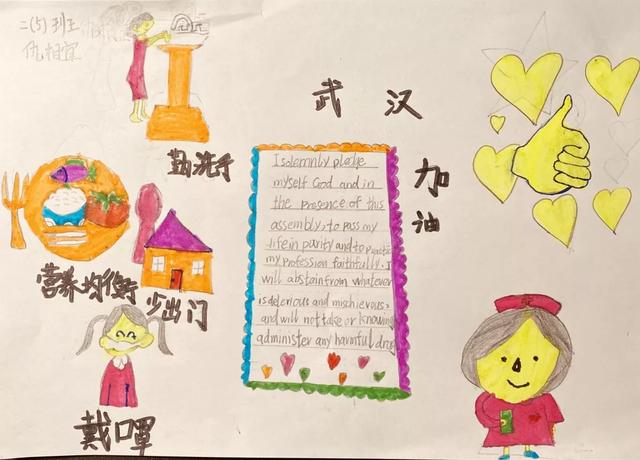 二(5)班王
仇相宜
勤洗手
武汉
加油
营养均衡
少出门
戴口罩
I solemnly pledge
myself God and in
the presence of this
assembly, to pass my
life in purity and to practice
my profession faithfully. I
will abstain from whatever
is delerious and mischievous,
and will not take or knowing
administer any harmful drug